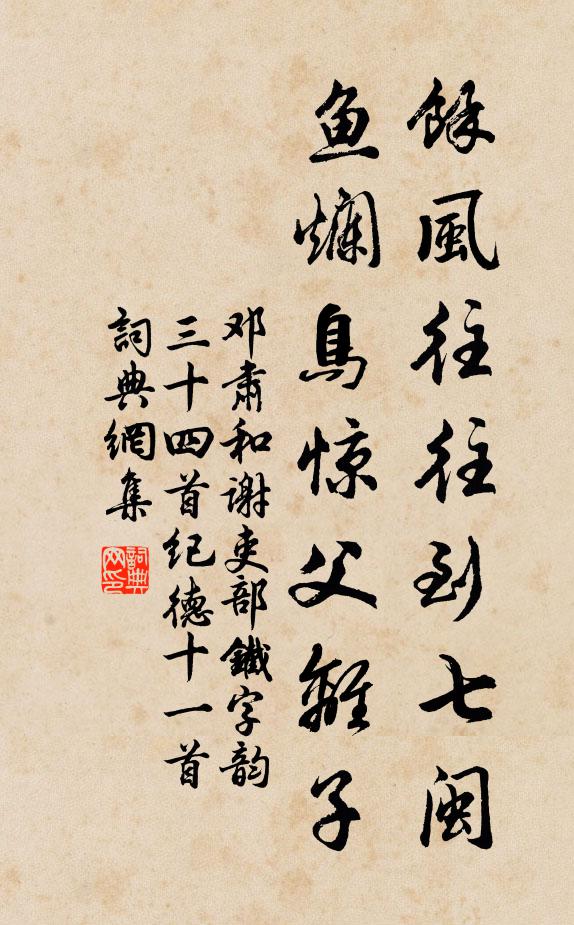 餘風往往到七闽
鱼爛鳥惊父離子
邓肅和谢吏部鐵字韵
三十四首纪德十一首
詞典網集
詞典网印